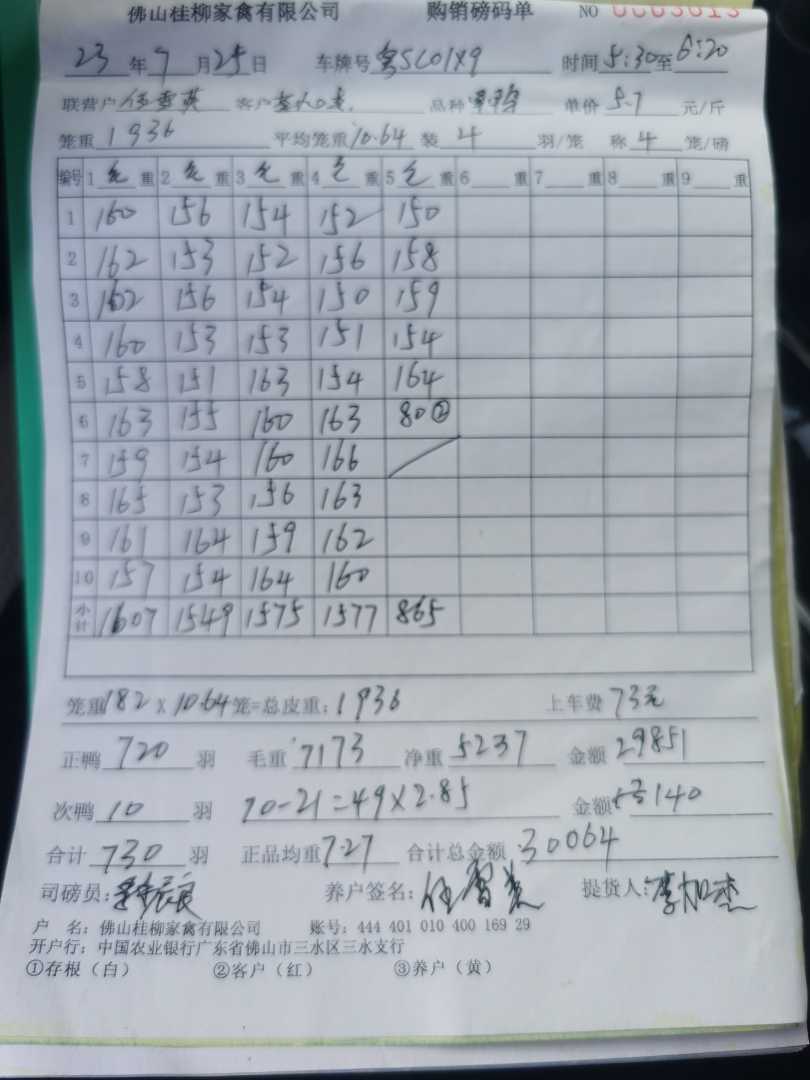 佛山桂柳家禽有限公司 购销磅码单 NO 0003613
23 年 7 月 25 日 车牌号 粤SC01X9 时间 5:30 至 6:20
联营户 伍雪英 客户 品种 单价 5.7 元/斤
笼重 1936 平均笼重 10.64 装 4 羽/笼 称 4 笼/磅
编号 1 毛 重 2 毛 重 3 毛 重 4 毛 重 5 毛 重 6 重 7 重 8 重 9 重
1 160 156 154 152 150
2 162 153 152 156 158
3 162 156 154 150 159
4 160 153 153 151 154
5 158 151 163 154 164
6 163 155 160 163 80②
7 159 154 160 166
8 165 153 156 163
9 161 164 159 162
10 157 154 164 160
小计 1607 1549 1575 1577 865
笼重 182 x 10.64 笼=总皮重: 1936 上车费 73元
正鸭 720 羽 毛重 7173 净重 5237 金额 29851
次鸭 10 羽 70-21=49×2.85 金额 140
合计 730 羽 正品均重 7.27 合计总金额 30064
司磅员: 养户签名: 伍雪英 提货人: 李加杰
户 名: 佛山桂柳家禽有限公司 账号: 444 401 010 400 169 29
开户行: 中国农业银行广东省佛山市三水区三水支行
①存根（白） ②客户（红） ③养户（黄）